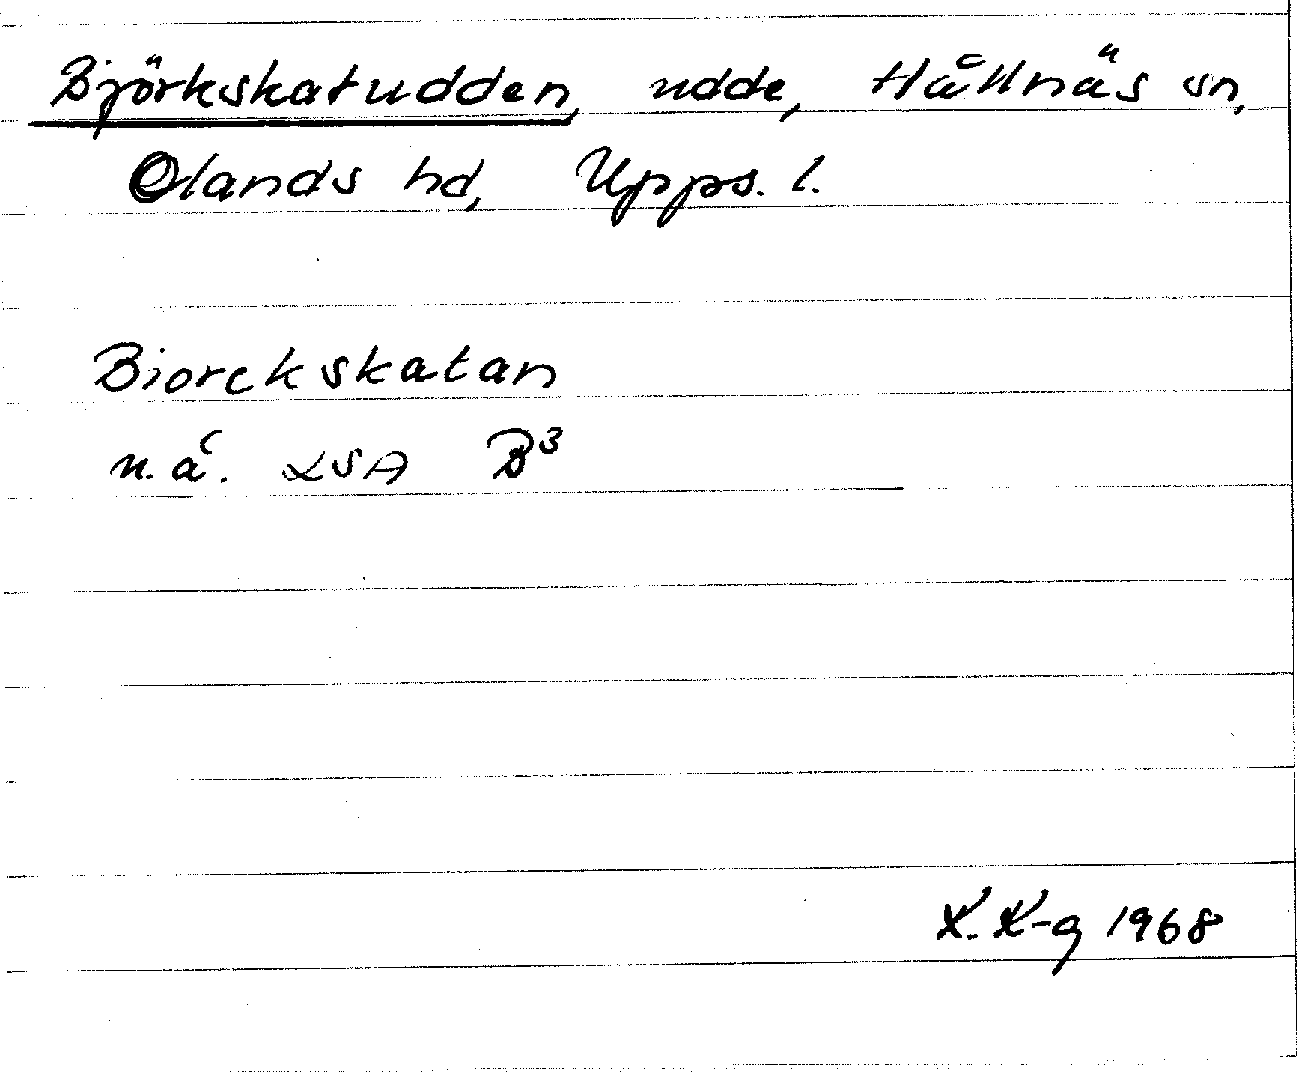 Björkskatudden, udde, Hållnäs sn,
Olands hd, Upps. l.
Biorckskatan
n.å. LSA B³
K. K-g 1968